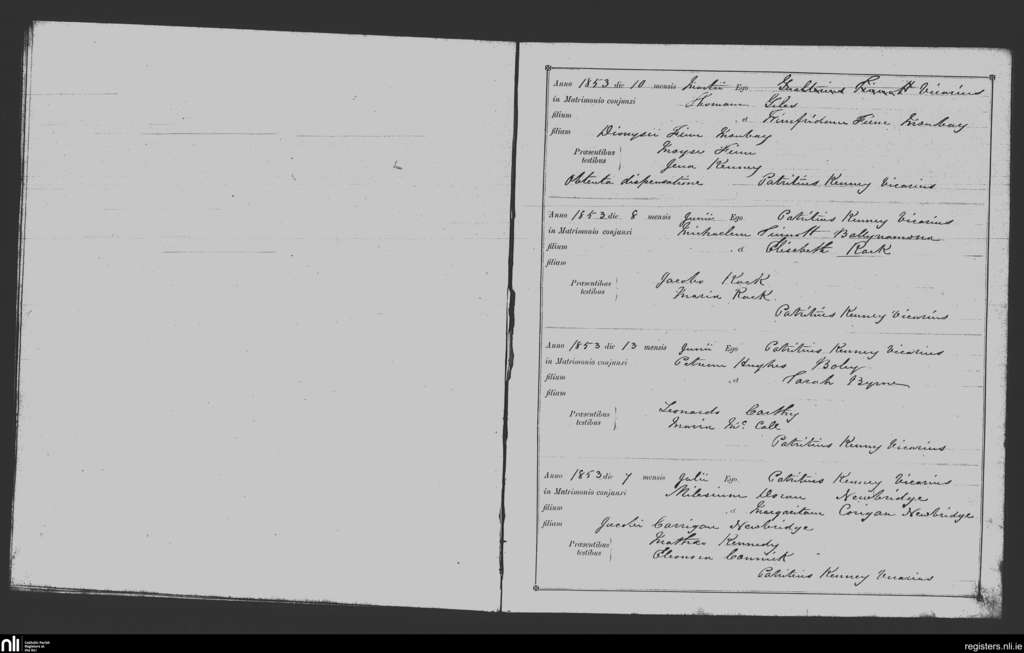 Anno 1853 die 10 mensis Martii Ego Gualterius Sinnott Vicarius
in Matrimonio conjunxi Thomam Giles
filium et Winfridam Finn Monbay
filiam Dionysii Finn Monbay
Præsentibus testibus Moyse Finn
Jena Kenney
Obtenta dispensatione Patritius Kenney Vicarius
Anno 1853 die 8 mensis Junii Ego Patritius Kenney Vicarius
in Matrimonio conjunxi Michaelem Sinnott Ballynamona
filium et Elisabeth Rock
filiam
Præsentibus testibus Jacobo Rock
Maria Rock
Patritius Kenney Vicarius
Anno 1853 die 13 mensis Junii Ego Patritius Kenney Vicarius
in Matrimonio conjunxi Petrum Hughes Boley
filium et Sarah Byrne
filiam
Præsentibus testibus Leonardo Carthy
Maria Mc Call
Patritius Kenny Vicarius
Anno 1853 die 7 mensis Julii Ego Patritius Kenney Vicarius
in Matrimonio conjunxi Milesium Doran Newbridge
filium et Margaritam Corigan Newbridge
filiam Jacobi Carrigan Newbridge
Præsentibus testibus Mathæo Kennedy
Eleonora Connick
Patritius Kenney Vicarius
nli Catholic Parish Registers at the NLI
registers.nli.ie